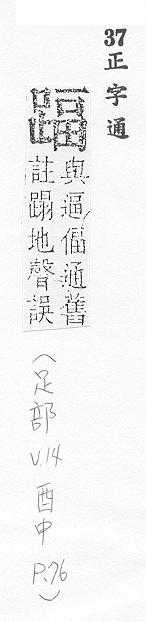 37 正字通
踾
與逼偪通舊
註蹋地聲誤
(足部 v.14 酉中 P.76)